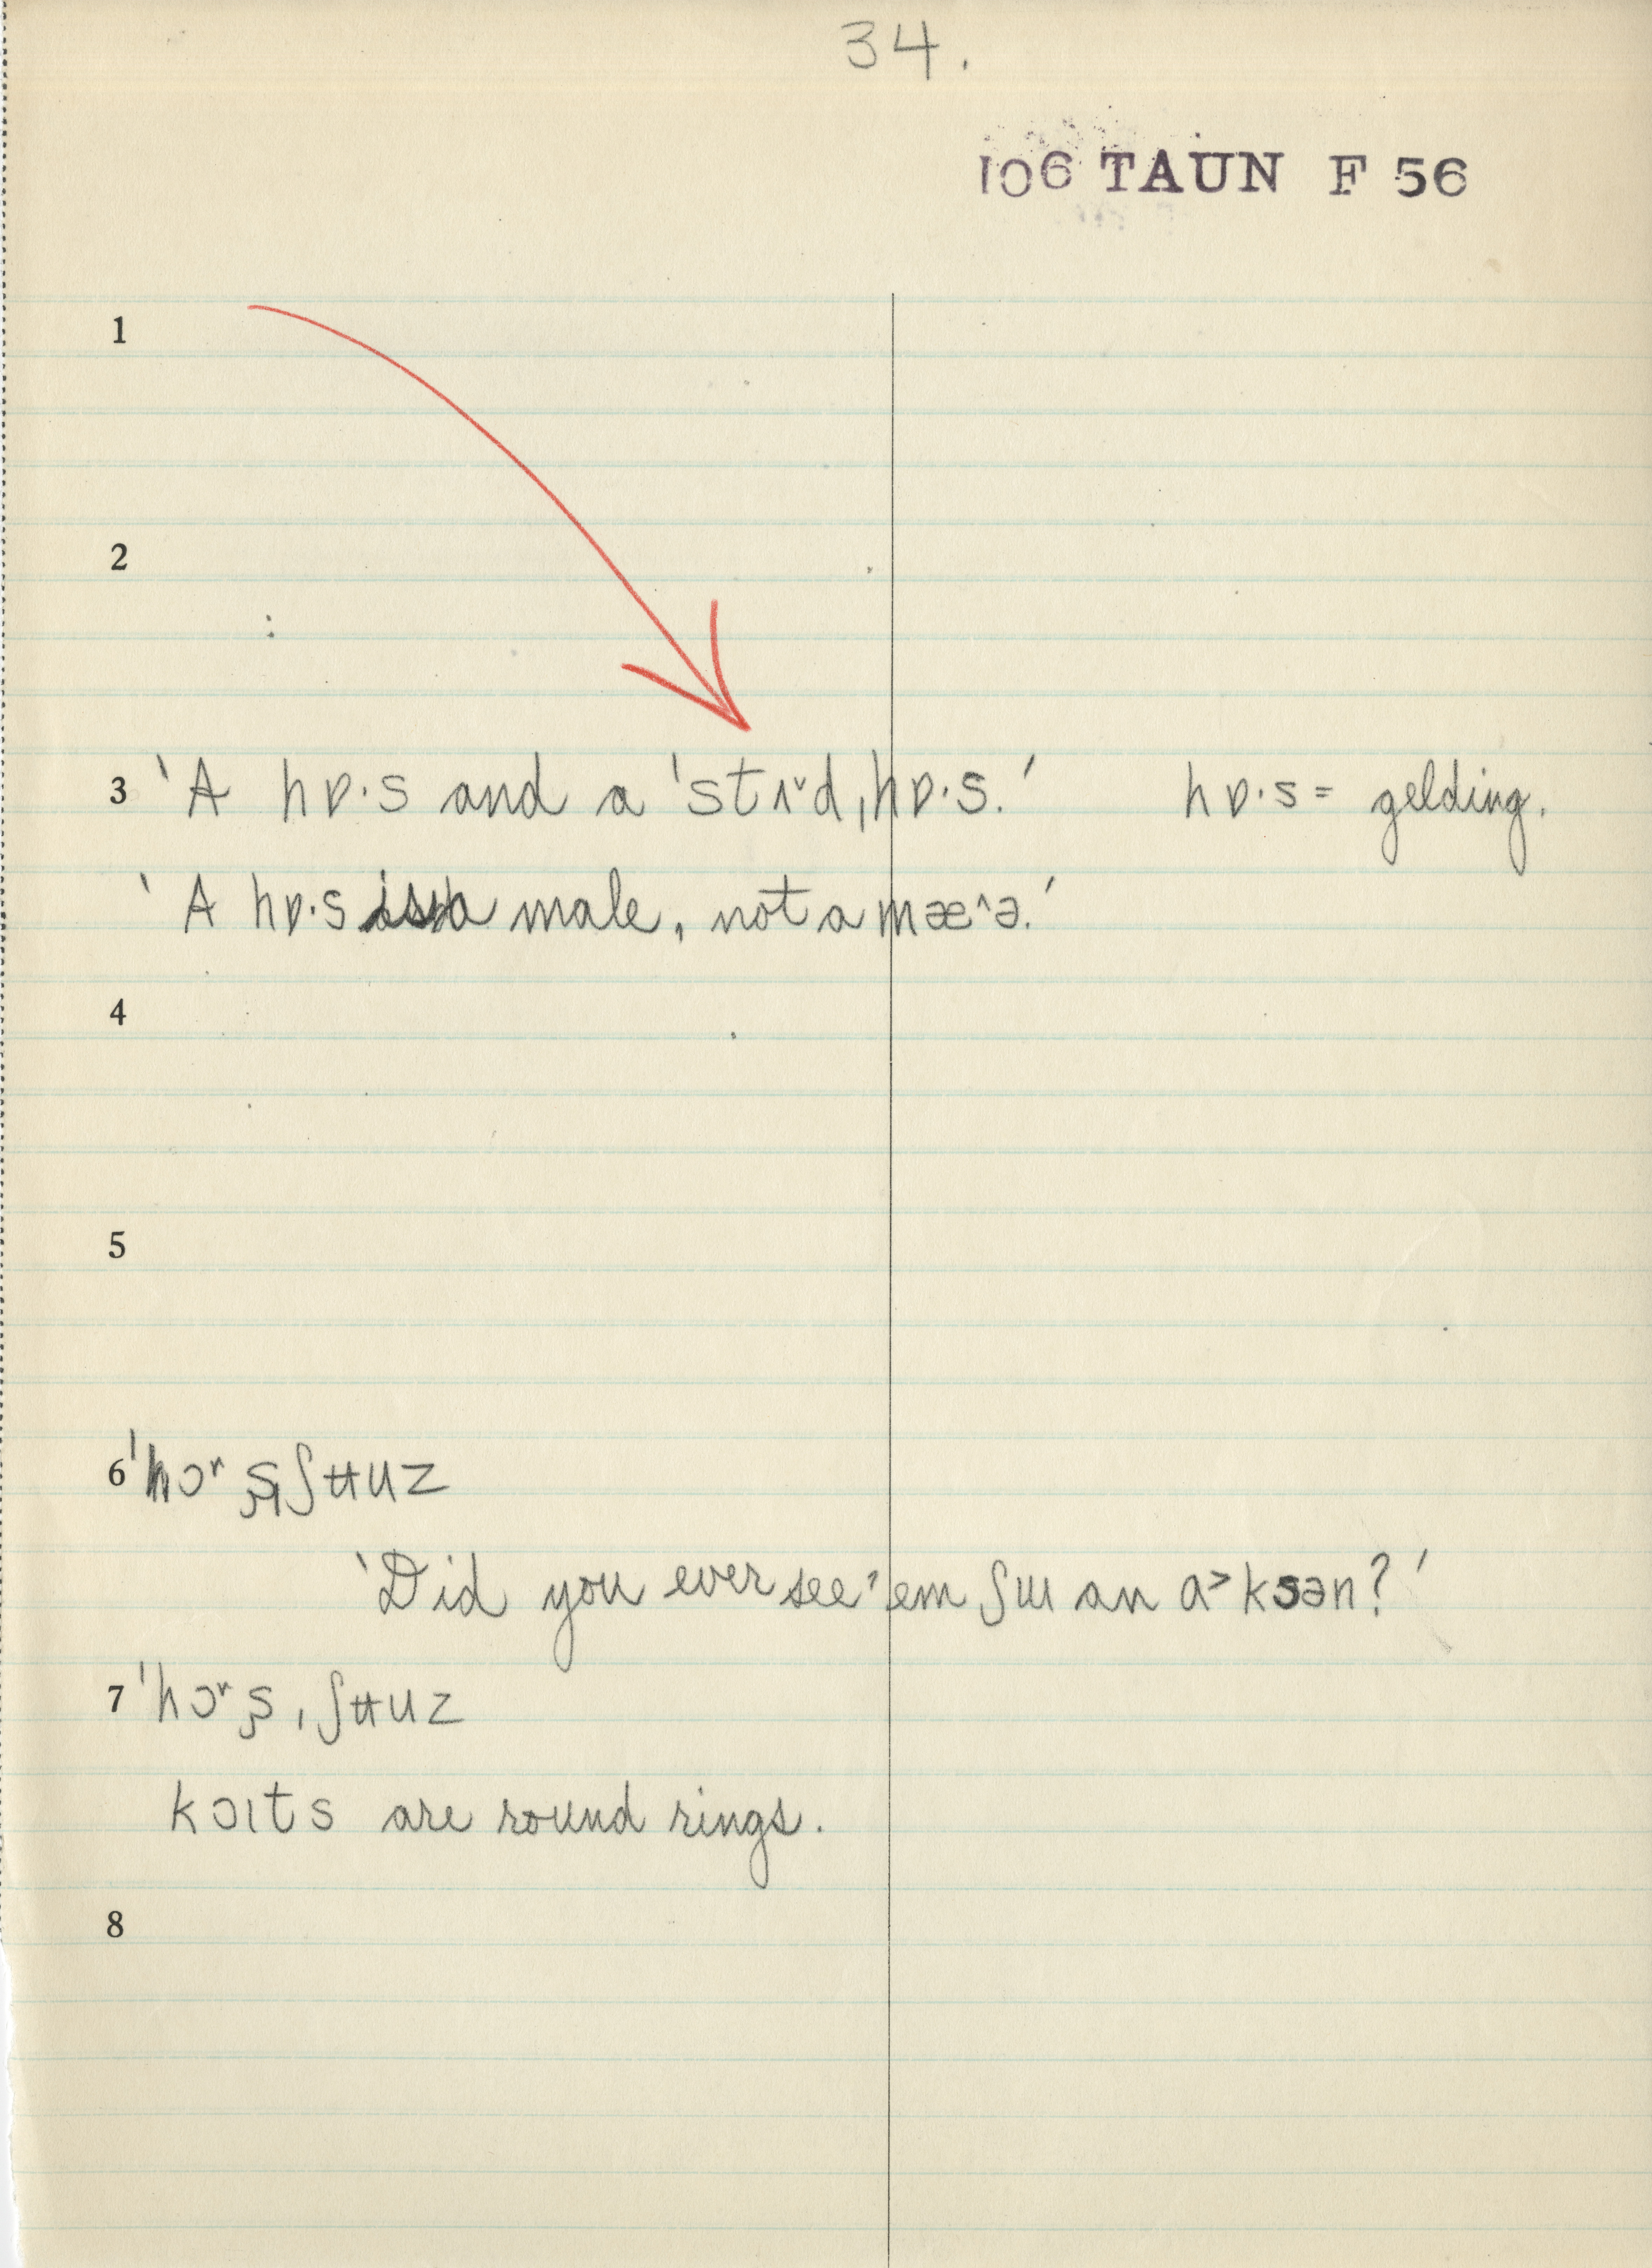 34.
106 TAUN F 56
1
2
3 ‘A hɒ·s and a ˈstɪ˅d,hɒ·s.’ hɒ·s = gelding.
‘A hɒ·s is a male, not a mæ^ə.’
4
5
6 ˈhɔʳʂˌʃʉuz
‘Did you ever see 'em ʃɯ an ɑ˃ksən?’
7 ˈhɔʳʂˌʃʉuz
kɔɪts are round rings.
8